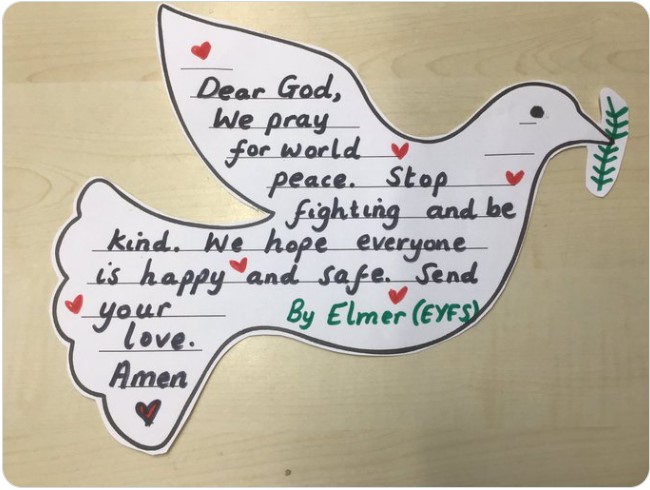 Dear God,
We pray
for world
peace. Stop
fighting and be
kind. We hope everyone
is happy and safe. Send
your
love.
Amen
By Elmer (EYFS)